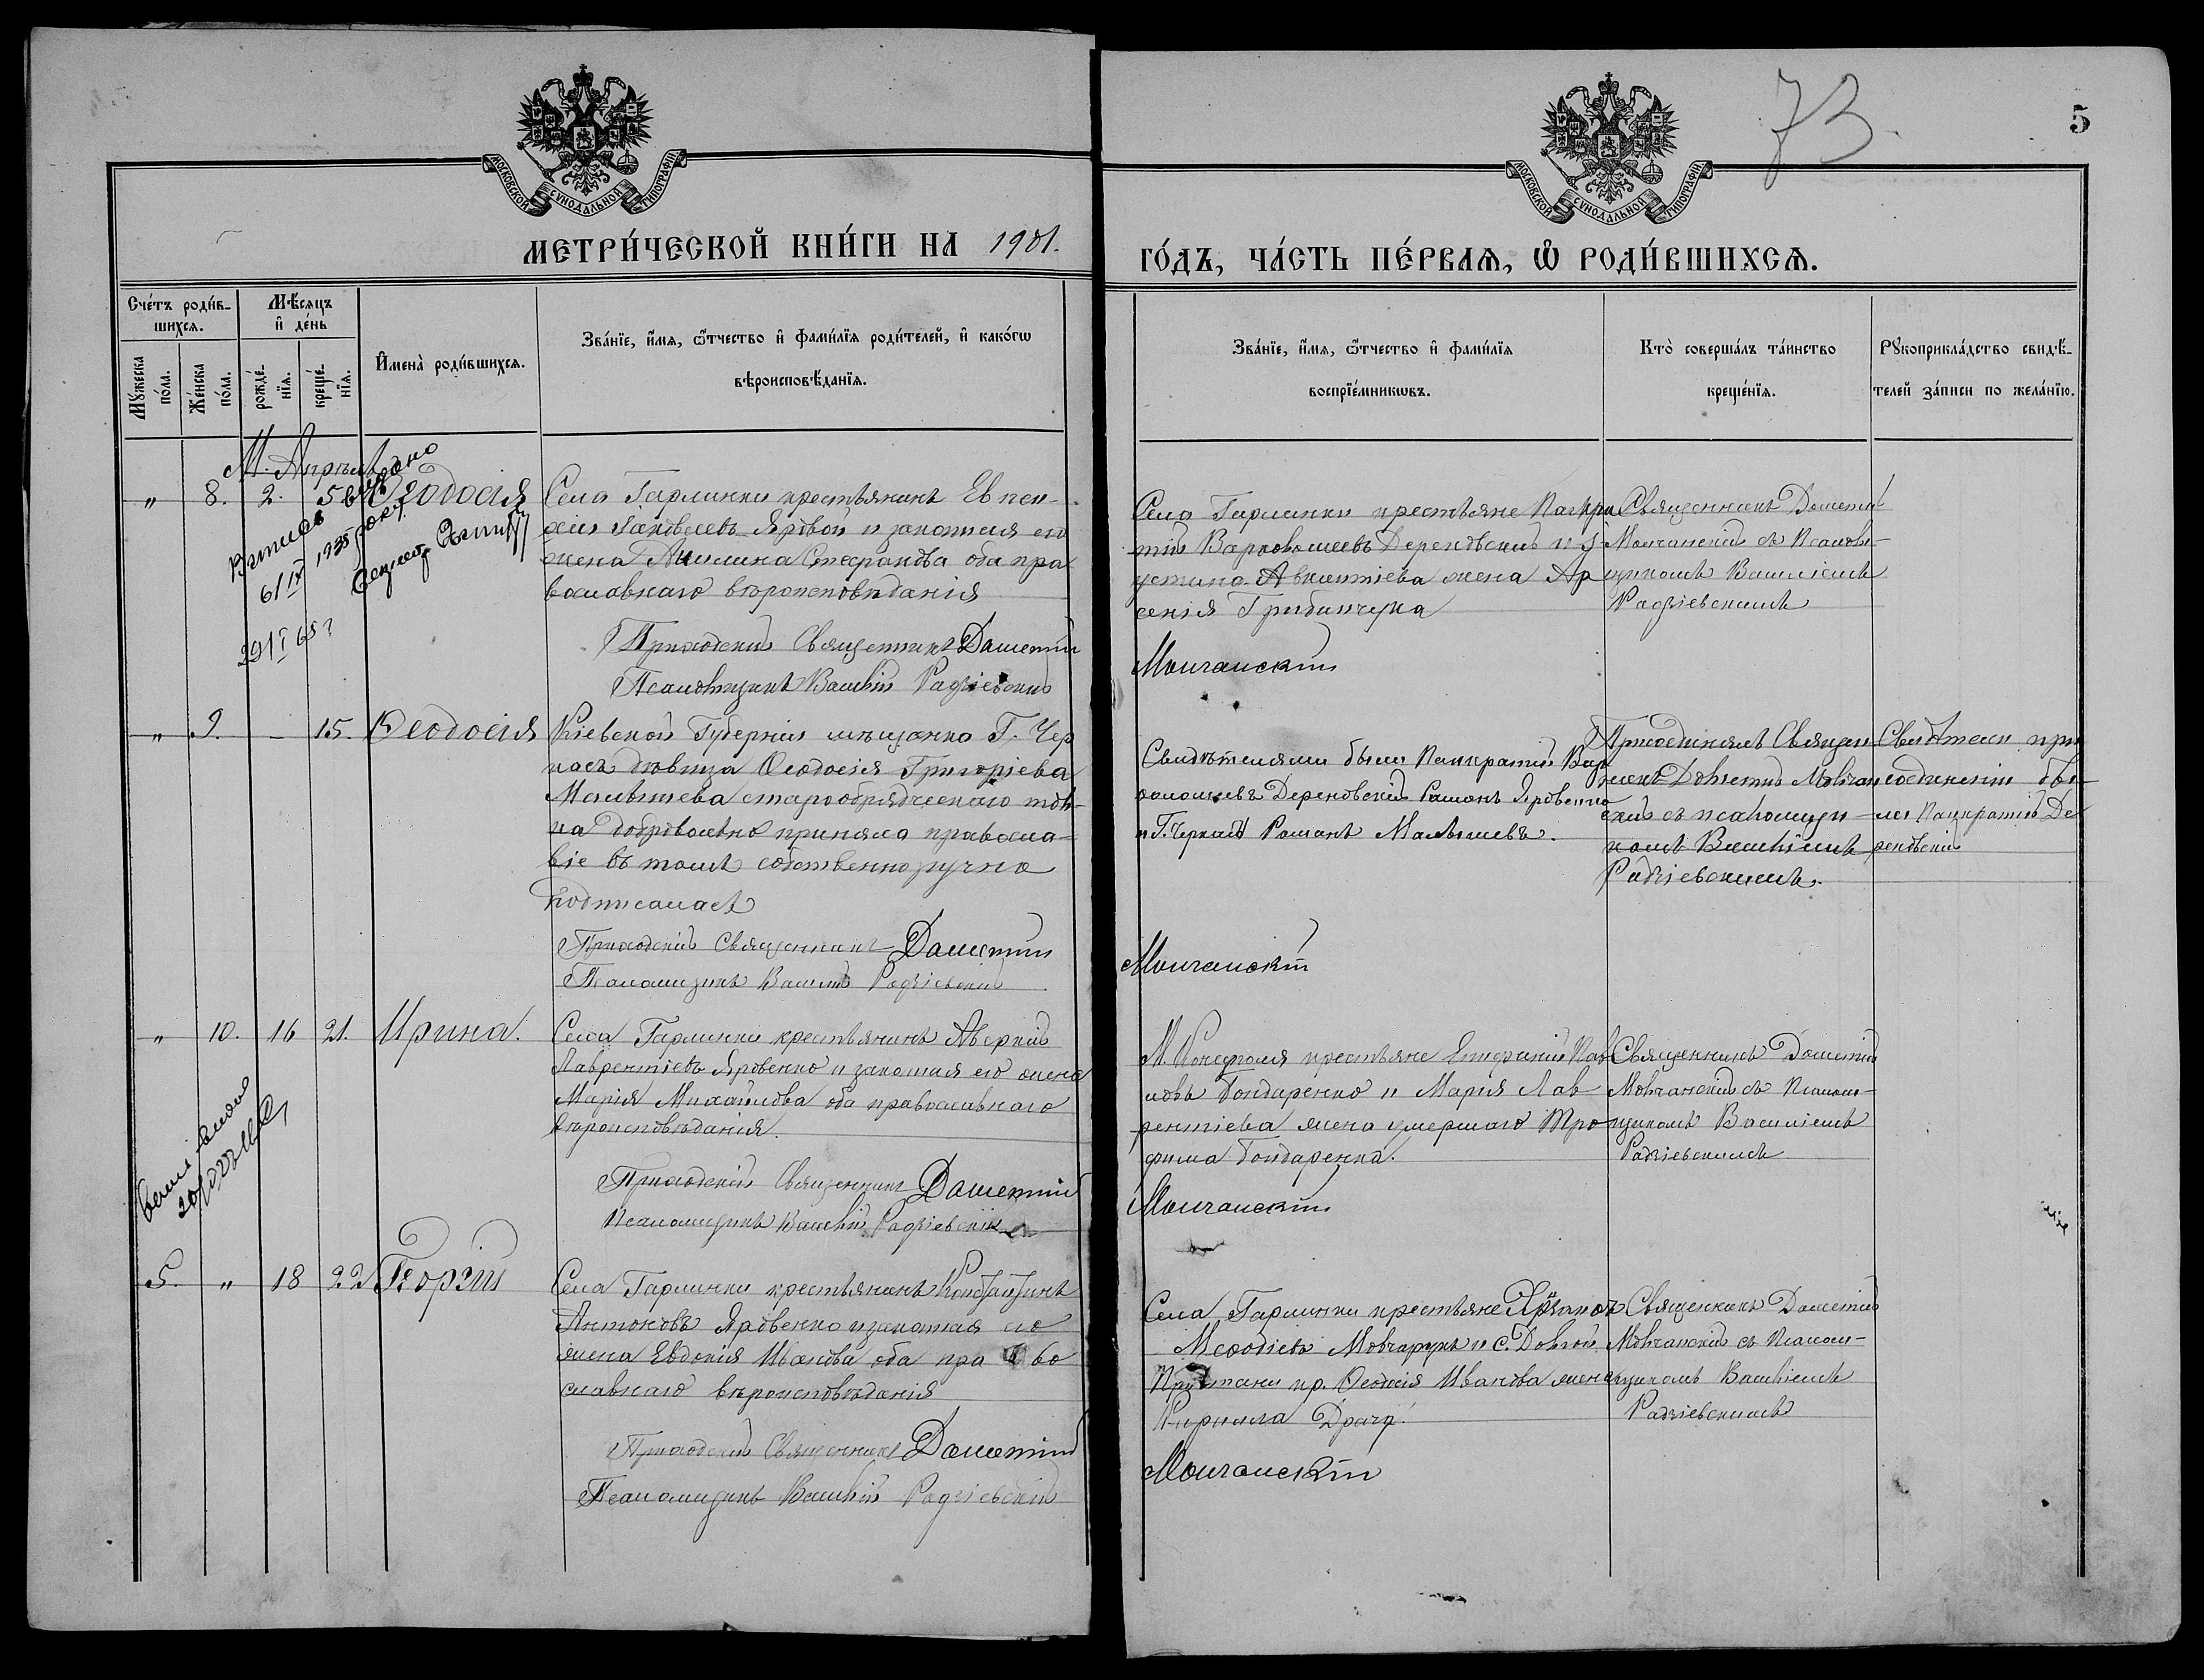 73.
5
МОСКОВСКОЙ СѴНОДАЛЬНОЙ ТИПОГРАФІИ
МОСКОВСКОЙ СѴНОДАЛЬНОЙ ТИПОГРАФІИ
МЕТРИ́ЧЕСКОЙ КНИ́ГИ НА 1901.
ГО́ДЪ, ЧА́СТЬ ПЕ́РВАѦ, Ѡ РОДИ́ВШИХСѦ.
Сче́тъ роди́в-
шихсѧ.
Мѣ́сѧцъ
и҆ де́нь
Мꙋ́жеска
по́ла.
Же́нска
по́ла.
рожде́-
нїѧ.
креще́-
нїѧ.
И҆мена̀ роди́вшихсѧ.
Зва́нїе, и҆́мѧ, ѻ҆́тчество и҆ фами́лїѧ роди́телей, и҆ како́гѡ
вѣроисповѣ́данїѧ.
Зва́нїе, и҆́мѧ, ѻ҆́тчество и҆ фами́лїѧ
воспрїе́мникѡвъ.
Кто̀ соверша́лъ та́инство
креще́нїѧ.
Рꙋкоприкла́дство свидѣ́-
телей за́писи по жела́нїю.
М. Апрѣль
" 8. 2. 5 Ѳеодосія
6/IV 1935 року
29/I 65 г
Села Гарлинки крестьянинъ Евпси-
хій Яковлевъ Яровой и законная его
жена Акилина Стефанова оба пра
вославнаго вѣроисповѣданія
Приходскій Священникъ Дометій
Псаломщикъ Василій Радзіевскій
Села Гарлинки крестьяне Панкра
тій Варѳоломеевъ Дереновскій и У-
устина Авксентіева жена Ар
сенія Грибинчука
Молчанскій
Священникъ Дометій
Молчанскій съ Псалом-
щикомъ Василіемъ
Радзіевскимъ
" 9. – 15. Ѳеодосія
Кіевской Губерніи мѣщанка Г. Чер
касъ дѣвица Ѳеодосія Григоріева
Малышева старообрядческаго тол-
ка добровольно приняла правосла-
віе въ томъ собственноручно
подписалась
Приходскій Священникъ Дометій
Псаломщикъ Василій Радзіевскій
Свидѣтелями были Панкратій Вар
ѳоломеевъ Дереновскій Романъ Яровенко
и Г. Черкасъ Романъ Малышевъ.
Молчанскій
Присоединялъ Священ-
никъ Дометій Молчан
скій съ псаломщи-
комъ Василіемъ
Радзіевскимъ.
Свидѣтели при
соединеніи бы-
ли Панкратій Де
реновскій
" 10. 16 21. Ирина.
Села Гарлинки крестьянинъ Аверкій
Лаврентіевъ Яровенко и законная его жена
Марія Михайлова оба православнаго
вѣроисповѣданія.
Приходскій Священникъ Дометій
Псаломщикъ Василій Радзіевскій
М. Конецполя крестьяне Епифаній Пав
ловъ Бондаренко и Марія Лав-
рентіева жена умершаго Тро
фима Бондаренка.
Молчанскій
Священникъ Дометій
Молчанскій съ Псалом-
щикомъ Василіемъ
Радзіевскимъ
5. " 18 22 Георгій
Села Гарлинки крестьянинъ Константинъ
Антоновъ Яровенко и законная его
жена Евдокія Иванова оба пра во
славнаго вѣроисповѣданія
Приходскій Священникъ Дометій
Псаломщикъ Василій Радзіевскій
Села Гарлинки крестьяне
Меѳодіевъ Мовчарукъ и с. Довгой
Пристани кр. Ѳеодосія Иванова жена
Кирилла Драча.
Молчанскій
Священникъ Дометій
Молчанскій съ Псалом-
щикомъ Василіемъ
Радзіевскимъ